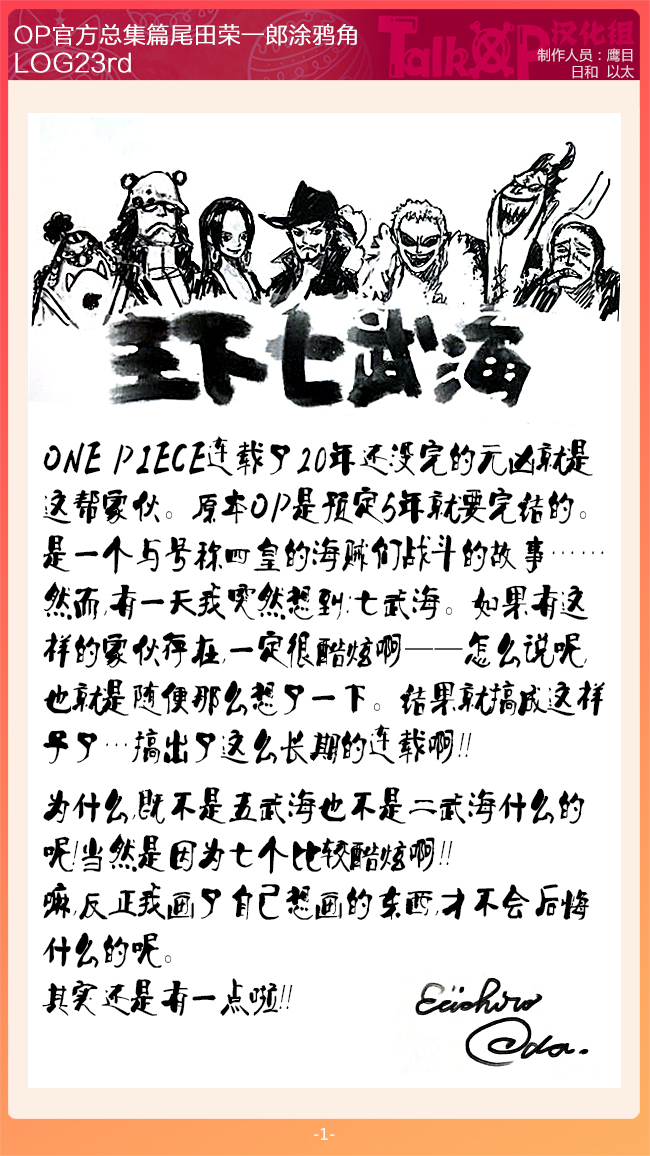 OP官方总集篇尾田荣一郎涂鸦角
LOG23rd
TalkOP汉化组
制作人员：鹰目
日和 以太
王下七武海
ONE PIECE连载了20年还没完的元凶就是
这帮家伙。原本OP是预定5年就要完结的。
是一个与号称四皇的海贼们战斗的故事……
然而,有一天我突然想到:七武海。如果有这
样的家伙存在,一定很酷炫啊——怎么说呢,
也就是随便那么想了一下。结果就搞成这样
子了…搞出了这么长期的连载啊!!
为什么,既不是五武海也不是二武海什么的
呢!当然是因为七个比较酷炫啊!!
嘛,反正我画了自己想画的东西,才不会后悔
什么的呢。
其实还是有一点啦!!
Eiichiro
Oda.
-1-